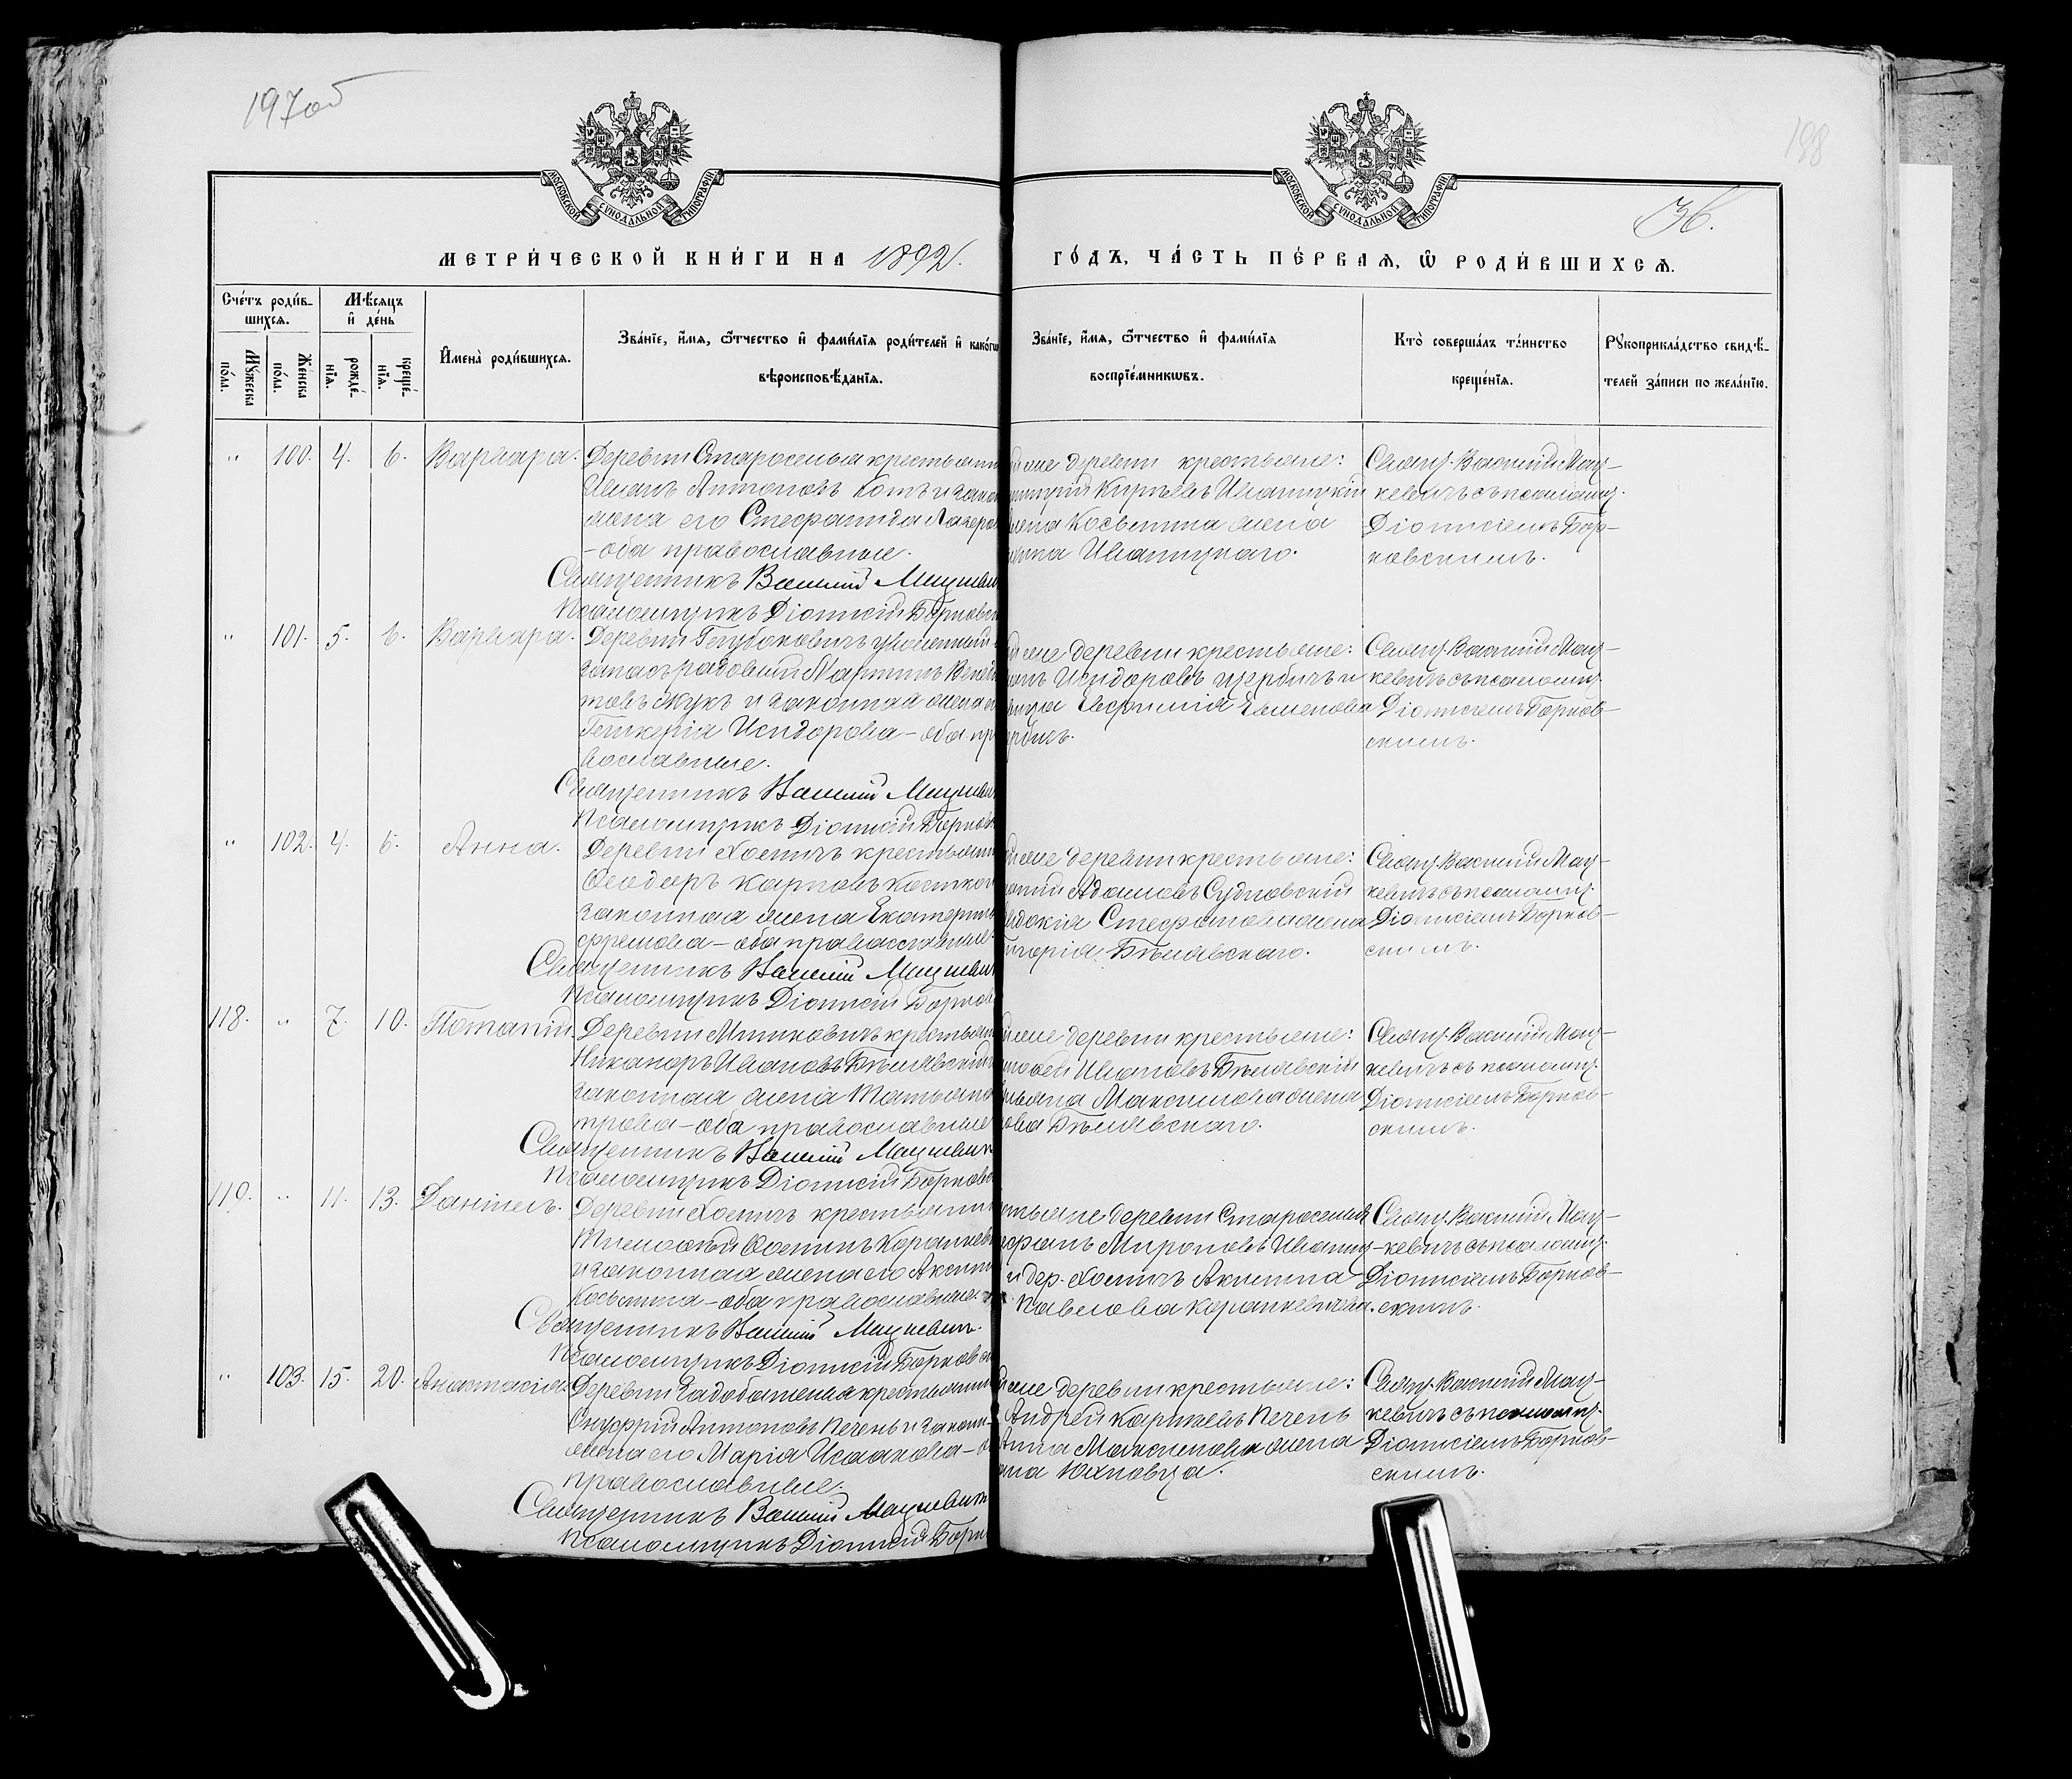 197об
198
36.
МОСКОВСКОЙ СѴНОДАЛЬНОЙ ТИПОГРАФІИ
МОСКОВСКОЙ СѴНОДАЛЬНОЙ ТИПОГРАФІИ
МЕТРИ́ЧЕСКОЙ КНИ́ГИ НА 1892.
ГО́ДЪ, ЧА́СТЬ ПЕ́РВАѦ, Ѿ РОДИ́ВШИХСѦ.
Сче́тъ роди́в-
шихсѧ.
Мꙋжеска по́ла.
Же́нска по́ла.
Мѣ́сѧцъ
и҆ де́нь
рожде́-
нїѧ.
креще́-
нїѧ.
И҆мена̀ роди́вшихсѧ.
Зва́нїе, и҆́мѧ, ѻ҆́тчество и҆ фами́лїѧ роди́телей и҆ како́гѡ
вѣроисповѣ́данїѧ.
Зва́нїе, и҆́мѧ, ѻ҆́тчество и҆ фами́лїѧ
воспрїе́мникѡвъ.
Кто̀ соверша́лъ та́инство
креще́нїѧ.
Рꙋкоприкла́дство свидѣ́-
телей за́писи по жела́нїю.
" 100. 4. 6. Варвара.
Деревни Староселья крестьянин
Иванъ Антоновъ Котъ и закон
жена его Стефанида Лазаров
-оба православные.
Священникъ Василий Мацкевич
Псаломщикъ Діонисій Борковс
деревни крестьяне:
Кирѣевъ Иваницкій
Косьмина жена
Иваницкаго.
Свящ. Василій Мац-
кевичъ съ псаломщ.
Діонисіемъ Бор-
ковскимъ.
" 101. 5. 6. Варвара.
Деревни Глубоковичъ уволенный
запасъ рядовый Мартинъ Венед
товъ Жукъ и законная жена е
Гликерія Исидорова-оба пр
вославные.
Священникъ Василий Мацкевич
Псаломщикъ Діонисій Борков
деревни крестьяне:
Исидоровъ Щербичъ и
Евфимія Евменова
рбичъ.
Свящ. Василій Мац-
кевичъ съ псаломщ.
Діонисіемъ Борков-
скимъ.
" 102. 4. 6. Анна.
Деревни Хоемичъ крестьянин
Ѳеодоръ Карповъ
законная жена Екатерина
ефремова-оба православные.
Священникъ Василий Мацкевич
Псаломщикъ Діонисій Борков
деревни крестьяне:
Адамовъ Судновскій
Стефанова жена
Бѣлявскаго.
Свящ. Василій Мац-
кевичъ съ псаломщ.
Діонисіемъ Борков-
скимъ.
118. " 7. 10. Потапій.
Деревни Миниковичъ крестьянин
Никаноръ Ивановъ Бѣлявскій
законная жена Татьяна
трова-оба православные
Священникъ Василий Мацкевич
Псаломщикъ Діонисій Борков
деревни крестьяне:
Ивановъ Бѣлявскій
Максимова жена
Бѣлявскаго.
Свящ. Василій Мац-
кевичъ съ псаломщ.
Діонисіемъ Борков-
скимъ.
119. " 11. 13. Даніилъ.
Деревни Хоемичъ крестьянин
Тимоѳей Ѳоминъ Коранкеви
и законная жена его Аксин
Косьмина-оба православные.
Священникъ Василий Мацкевич.
Псаломщикъ Діонисій Борковс
деревни Староселья
Мироновъ Иваниц-
и дер. Хоемичъ Акилина
Павлова Коранкевичева.
Свящ. Василій Мац-
кевичъ съ псаломщ.
Діонисіемъ Борков-
скимъ.
" 103. 15. 20. Анастасія.
Деревни крестьянин
Онуфрій Антоновъ Печень и закон-
жена его Марія Исаакова-о
православные.
Священникъ Василий Мацкевич
Псаломщикъ Діонисій Борк
деревни крестьяне:
Андрей Карниевъ Печень
Анна Максимова жена
Юхновца.
Свящ. Василій Мац-
кевичъ съ псаломщ.
Діонисіемъ Борков-
скимъ.